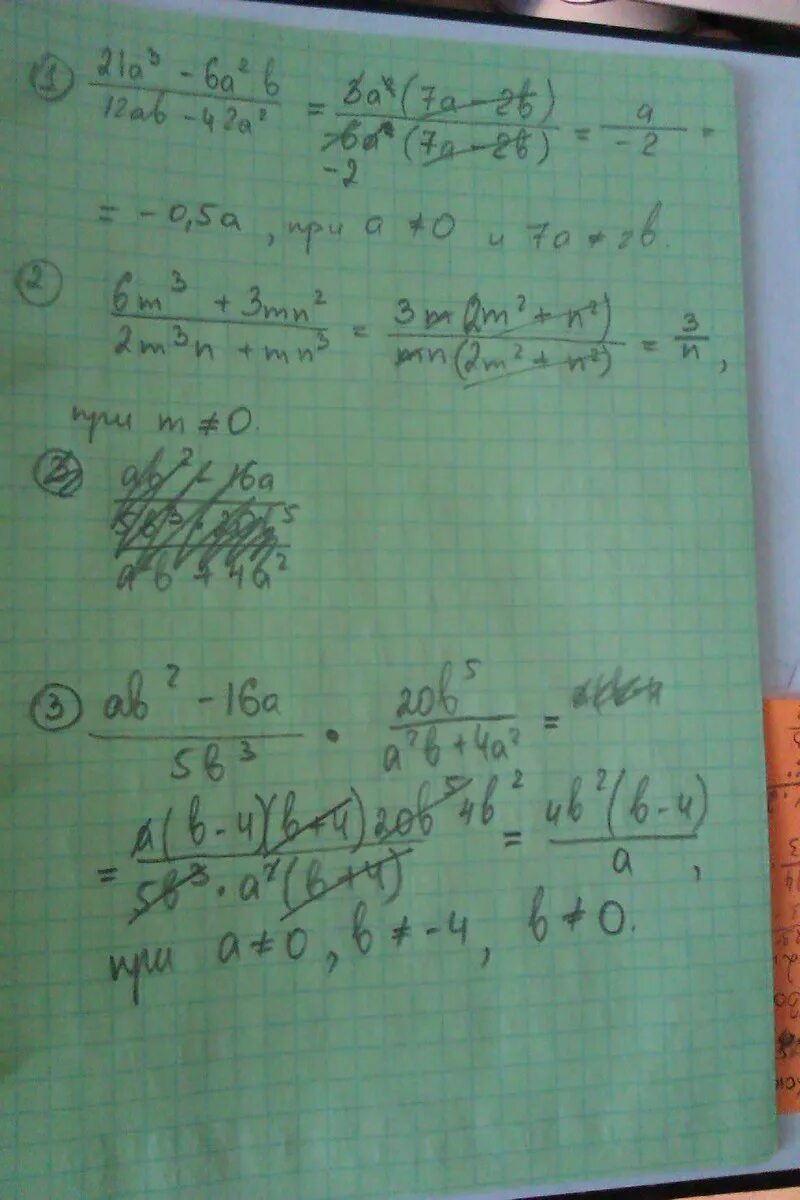 ① (21a³ - 6a²b)/(12ab - 42a²) = (3a²(7a - 2b))/(-6a²(7a - 2b)) = a/(-2) =
-2
= -0,5a, при a ≠ 0 и 7a ≠ 2b.
② (6m³ + 3mn²)/(2m³n + mn³) = (3m(2m² + n²))/(mn(2m² + n²)) = 3/n,
при m ≠ 0.
③ (ab² - 16a)/(5b³) · (20b⁵)/(a²b + 4a²) =
= (a(b-4)(b+4)20b⁵ 4b²)/(5b³ · a²(b+4)) = (4b²(b-4))/a,
при a ≠ 0, b ≠ -4, b ≠ 0.